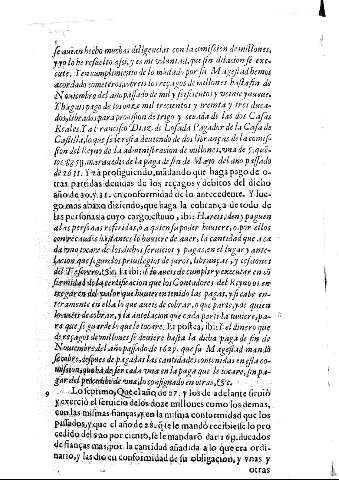 se auian hecho muchas diligencias con la comission de millones,
y yo lo he resuelto assi, y es mi voluntad, que sin dilacion se exe-
cute. Y en cumplimiento de lo mãdado por su Magestad hemos
acordado someteros cobreis los reçagos de millones hasta fin de
Nouiembre del año passado de mil y seiscientos y veinte y nueue.
Y hagais pago de los onze mil trecientos y treinta y tres duca-
dos, librados para prouision de trigo y ceuada de las dos Casas
Reales. Y a Francisco Diaz de Losada Pagador de la Casa de
Castilla, lo que se le resta deuiendo de dos libranças de la comis-
sion del Reyno de la administracion de millones, vna de
marauedis de la paga de fin de Mayo del año passado
de 1611. Y và prosiguiendo, mãdando que haga pago de o-
tras partidas deuidas de los reçagos y debitos del dicho
año de 30. y 31. en conformidad de lo antecedente. Y lue-
go mas abaxo diziendo, que haga la cobrança de todo de
las personas a cuyo cargo estuuo, ibi: Hareis, den y paguen
a las personas referidas, o a quien su poder huuiere, o por ellos
conuocados instantes lo huuiere de auer, la cantidad que a ca-
da vno tocare de los dichos seruicios y pagas, en el lugar y ante-
lacion que segun los priuilegios de juros, libranças, y cessiones
del Tesorero, &c. Et ibi: lo aueis de cumplir y executar en cõ
formidad de la certificacion que los Contadores del Reyno os en-
tregaren del valor que huuieren tenido las pagas, y si cabe en-
teramente en ella lo que aueis de cobrar, o que parte, y de quien
lo aueis de cobrar, y la antelacion que cada por tida tuuiere, pa-
ra que se guarde lo que le tocare. Et postea, ibi: Y al dinero que
de reçagos de millones se deuiere hasta la dicha paga de fin de
Nouiembre del año passado de 1629. que su Magestad mandò
se cobre, despues de pagadas las cantidades contenidas en esta co-
mission, que ha de ser cada vna en la paga que le tocare, sin pa-
gar del procedido de vna, lo consignado en otras, &c.
9 Lo septimo, Que el año de 27. y los de adelante siruiò
y exerciò el seruicio de los doze millones como los demas,
con las mismas fianças, y en la misma conformidad que los
passados, y que el año de 28. q̃ se le mandò recibiesse lo pro
cedido del vno por ciento, se le mandarõ dar 16µ. ducados
de fianças mas, por la cantidad añadida a lo que era ordi-
nario, y las dio en conformidad de su obligacion, y vnas y
otras